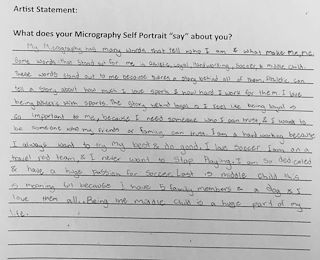 Artist Statement:
What does your Micrography Self Portrait "say" about you?
My Micrography has many words that tell who I am & what make me, me.
Some words that stand out for me is athletic, loyal, hardworking, soccer & middle child.
These words stand out to me because theres a story behind all of them. Athletic can
tell a story about how much I love sports & how hard I work for them I love
being athletic with sports. The story behind loyal is I feel like being loyal is
so important to me, because I need someone who I can trust, & I want to
be someone who my friends or family can trust. I am a hard working because
I always want to try my best & do good. I love soccer I am on a
travel red team & I never want to stop playing. I am so dedicated
& have a huge passion for soccer. Last is middle child this
is meaning ful because I have 5 family members & a dog & I
love them all. Being the middle child is a huge part of my
life.